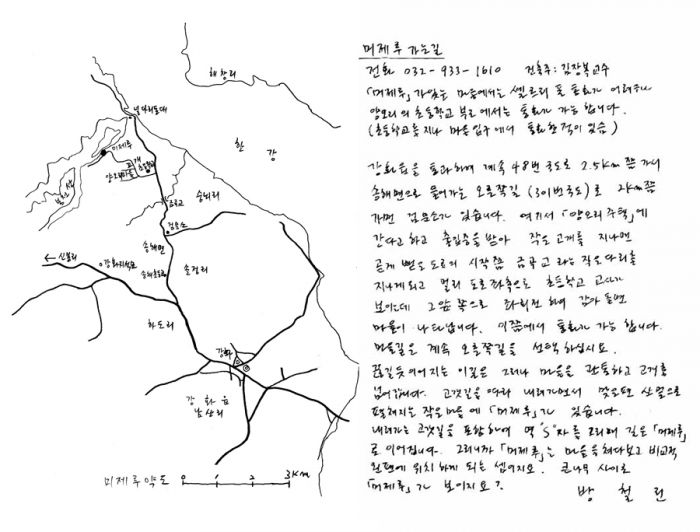 해창리
한강
머제루
송뇌리
검문소
송해면
솔정리
← 신봉리
하도리
강화
강화읍
남산리
미제루약도
0 1 2 3KM
머제루 가는길
전화 032-933-1610 건축주: 김장복교수
「머제루」가 있는 마을에서는 셀르리 폰 통화가 어려우나
양오리의 초등학교 부근에서는 통화가 가능합니다.
(초등학교를 지나 마을입구에서 통화한 적이 있음)
강화읍을 통과하여 계속 48번 국도로 2.5km쯤 가서
송해면으로 들어가는 오른쪽길 (301번국도)로 2km쯤
가면 검문소가 있습니다. 여기서 「양오리주택」에
간다고 하고 출입증을 받아 작은 고개를 지나면
곧게 뻗은 도로의 시작쯤 금곡교라는 작은다리를
지나게되고 멀리 도로좌측으로 초등학교 교사가
보이는데 그 앞쪽으로 좌회전하여 감아돌면
마을이 나타납니다. 이쯤에서 통화가 가능합니다.
마을길은 계속 오른쪽길을 선택하십시요.
끊길듯이어지는 이길은 그러나 마을을 관통하고 고개를
넘어갑니다. 고갯길을 따라 내려가면서 맞은편 산 옆으로
펼쳐지는 작은마을에 「머제루」가 있습니다.
내려가는 고갯길을 포함하여 역"S"자를 그리며 길은 「머제루」
로 이어집니다. 그러니까 「머제루」는 마을을 쳐다보고 비교적
왼편에 위치하게 되는 셈이지요. 큰나무 사이로
「머제루」가 보이지요?
방 철 린